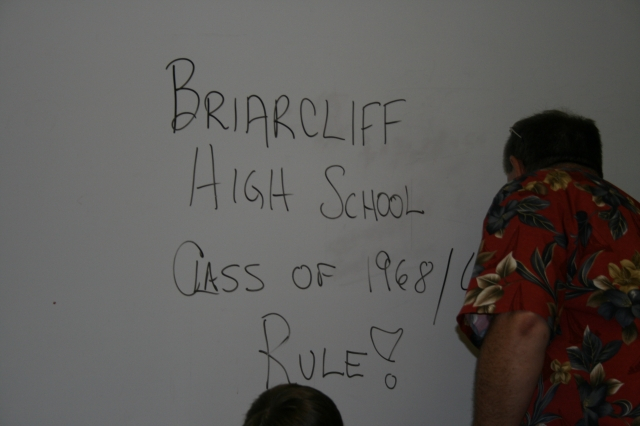 BRIARCLIFF
HIGH SCHOOL
CLASS OF 1968/
RULE!